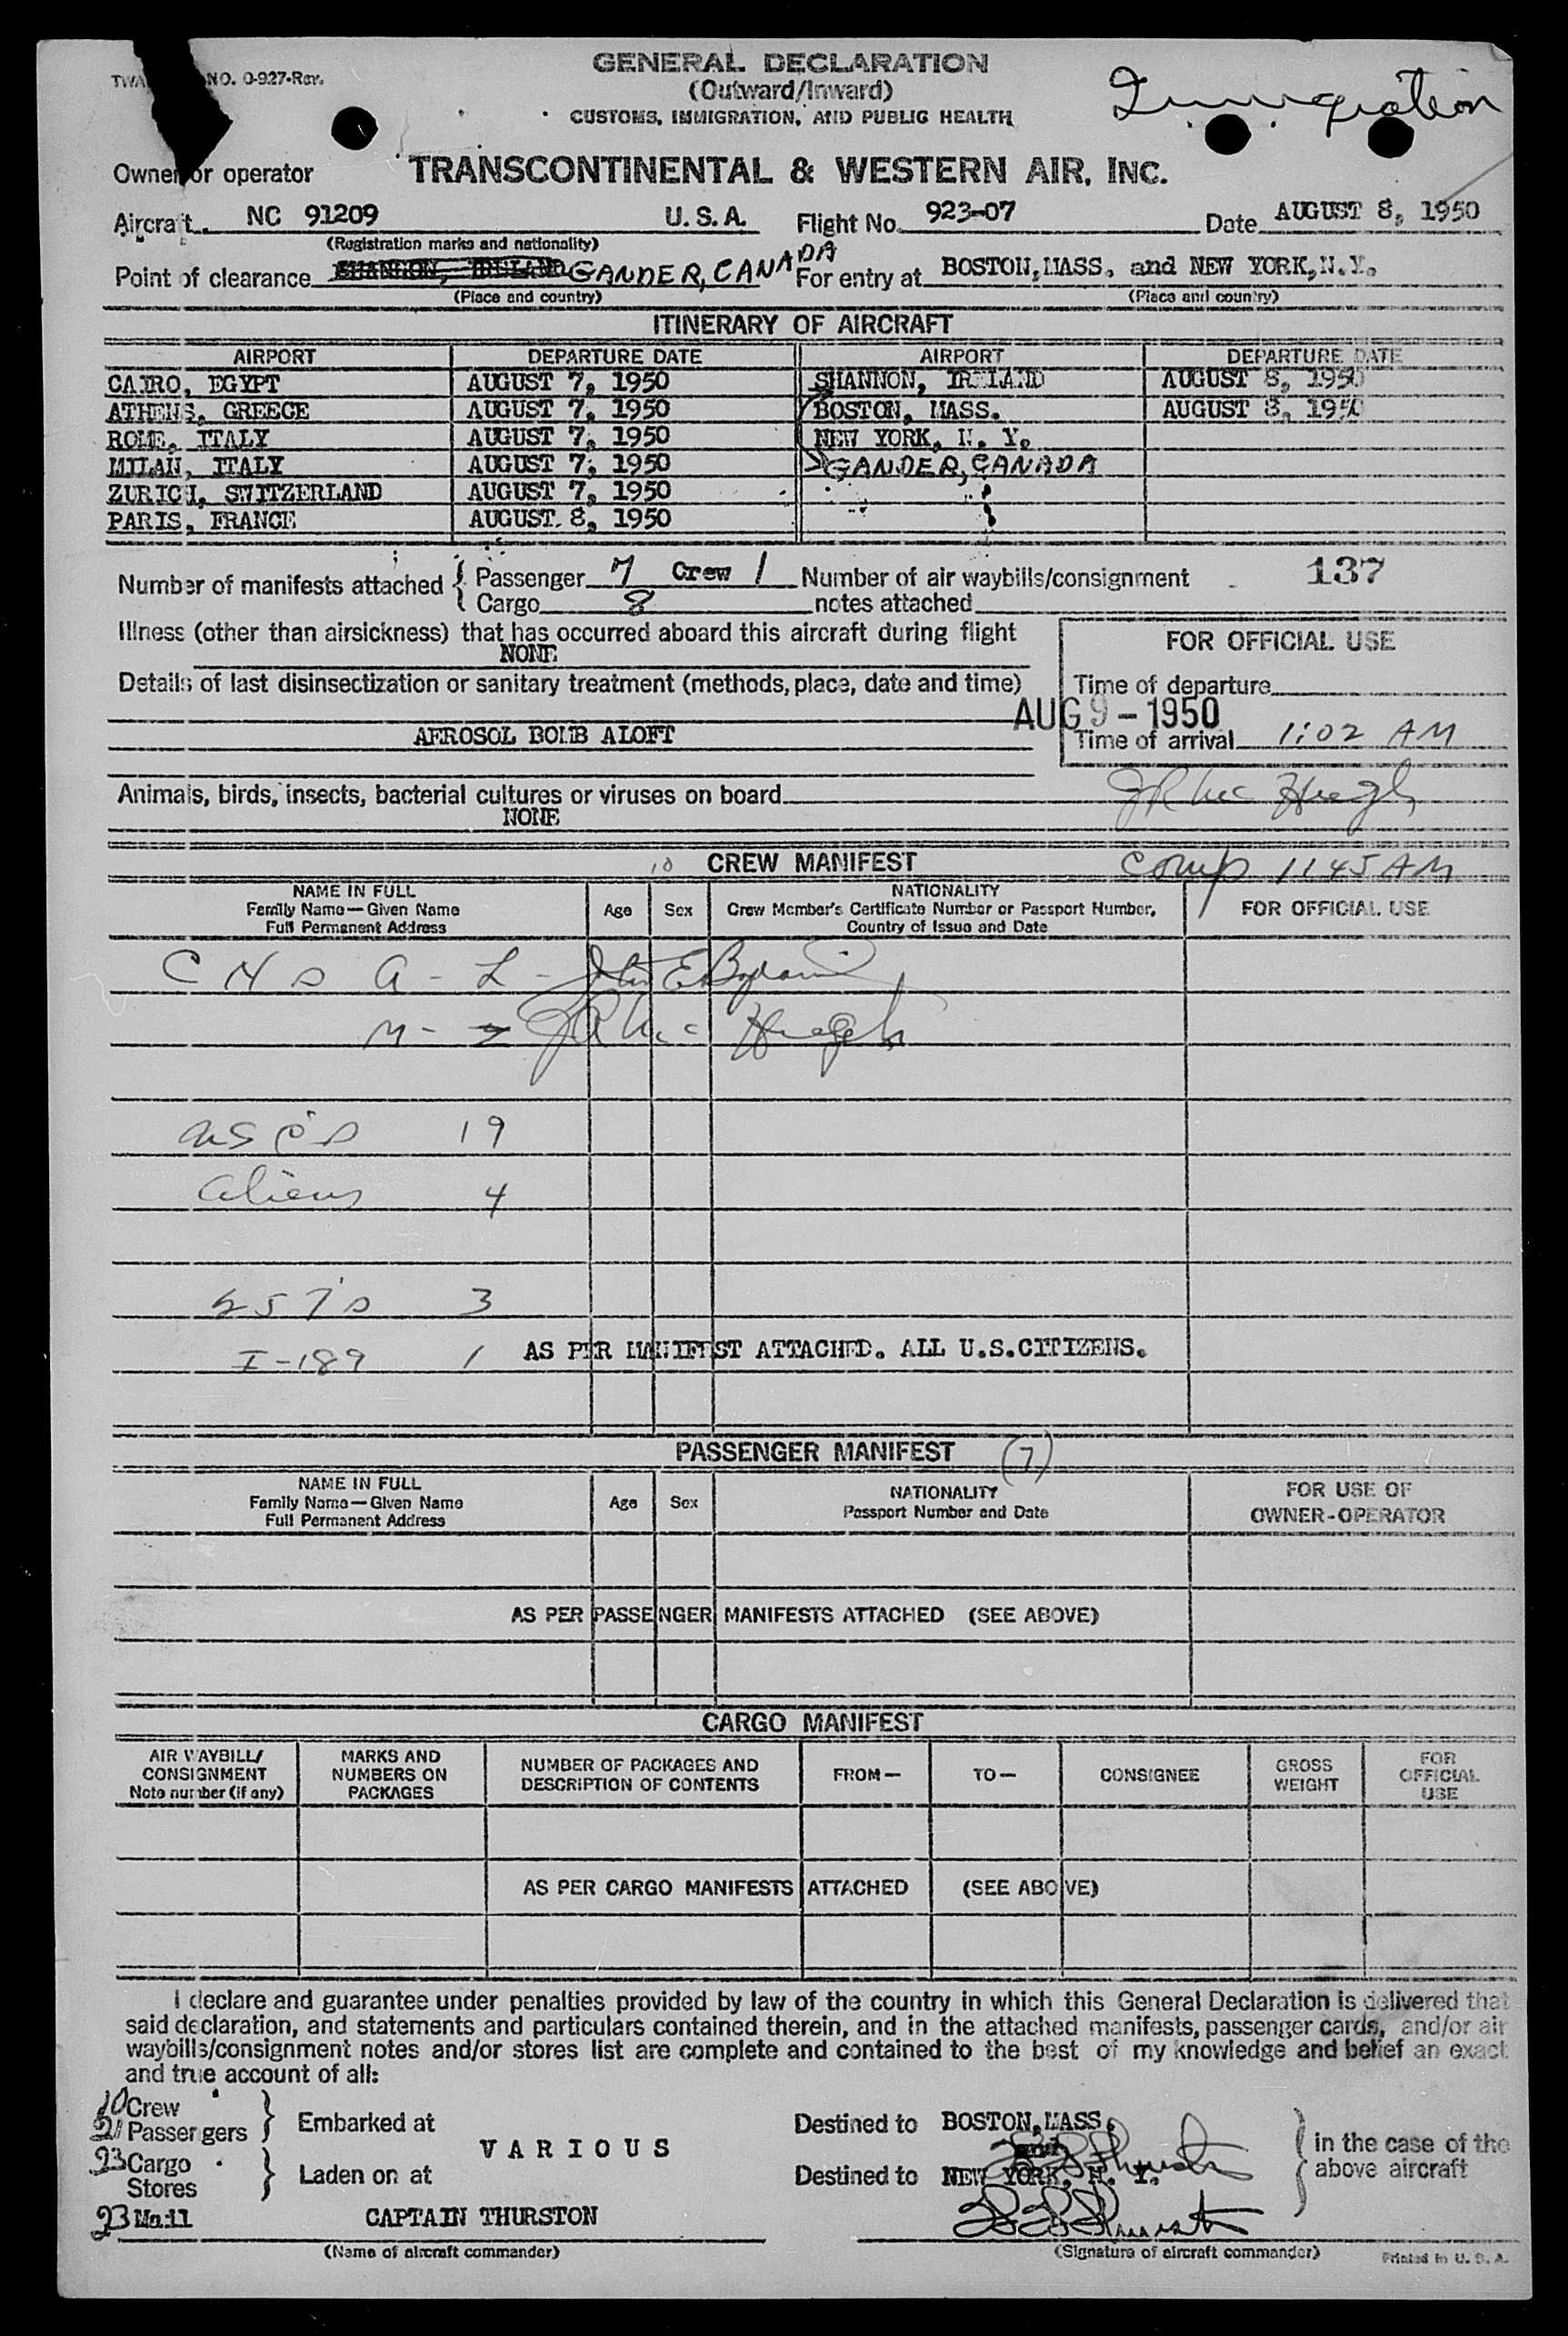 TWA NO. O-927-Rev.
GENERAL DECLARATION
(Outward/Inward)
CUSTOMS, IMMIGRATION, AND PUBLIC HEALTH
Immigration
Owner or operator TRANSCONTINENTAL & WESTERN AIR, INC.
Aircraft NC 91209 U.S.A. Flight No. 923-07 Date AUGUST 8, 1950
(Registration marks and nationality)
Point of clearance SHANNON, IRELAND GANDER, CANADA For entry at BOSTON, MASS. and NEW YORK, N.Y.
(Place and country) (Place and country)
ITINERARY OF AIRCRAFT
AIRPORT DEPARTURE DATE AIRPORT DEPARTURE DATE
CAIRO, EGYPT AUGUST 7, 1950 SHANNON, IRELAND AUGUST 8, 1950
ATHENS, GREECE AUGUST 7, 1950 BOSTON, MASS. AUGUST 8, 1950
ROME, ITALY AUGUST 7, 1950 NEW YORK, N. Y.
MILAN, ITALY AUGUST 7, 1950 GANDER, CANADA
ZURICH, SWITZERLAND AUGUST 7, 1950
PARIS, FRANCE AUGUST. 8, 1950
Number of manifests attached { Passenger 7 Crew 1 Number of air waybills/consignment 137
Cargo 8 notes attached
Illness (other than airsickness) that has occurred aboard this aircraft during flight
NONE
FOR OFFICIAL USE
Details of last disinsectization or sanitary treatment (methods, place, date and time)
Time of departure
AUG 9 - 1950
AEROSOL BOMB ALOFT
Time of arrival 1:02 AM
Animals, birds, insects, bacterial cultures or viruses on board
NONE
10 CREW MANIFEST Comp 1145 AM
NAME IN FULL
Family Name—Given Name
Full Permanent Address
Age Sex
NATIONALITY
Crew Member's Certificate Number or Passport Number,
Country of Issue and Date
FOR OFFICIAL USE
A - L - John E
M - Z
USC's 19
Aliens 4
257's 3
I-189 1 AS PER MANIFEST ATTACHED. ALL U.S.CITIZENS.
PASSENGER MANIFEST (7)
NAME IN FULL
Family Name—Given Name
Full Permanent Address
Age Sex
NATIONALITY
Passport Number and Date
FOR USE OF
OWNER-OPERATOR
AS PER PASSENGER MANIFESTS ATTACHED (SEE ABOVE)
CARGO MANIFEST
AIR WAYBILL/
CONSIGNMENT
Note number (if any)
MARKS AND
NUMBERS ON
PACKAGES
NUMBER OF PACKAGES AND
DESCRIPTION OF CONTENTS
FROM— TO— CONSIGNEE
GROSS
WEIGHT
FOR
OFFICIAL
USE
AS PER CARGO MANIFESTS ATTACHED (SEE ABOVE)
I declare and guarantee under penalties provided by law of the country in which this General Declaration is delivered that
said declaration, and statements and particulars contained therein, and in the attached manifests, passenger cards, and/or air
waybills/consignment notes and/or stores list are complete and contained to the best of my knowledge and belief an exact
and true account of all:
10 Crew
Passengers } Embarked at Destined to BOSTON, MASS.
VARIOUS and
23 Cargo
Stores } Laden on at Destined to NEW YORK, N. Y.
in the case of the
above aircraft
23 Mail CAPTAIN THURSTON
(Name of aircraft commander) (Signature of aircraft commander) Printed in U. S. A.